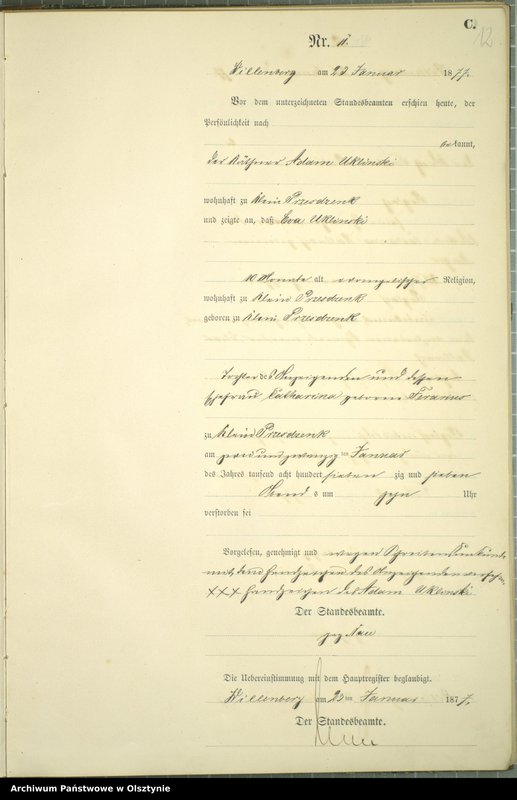 C.
12
Nr. 5.
Willenberg am 23 Januar 1877.
Vor dem unterzeichneten Standesbeamten erschien heute, der
Persönlichkeit nach
bekannt,
der Käthner Adam Uklinski
wohnhaft zu Klein Przesdzenk
und zeigte an, daß Eva Uklinski
10 Monate alt evangelischer Religion,
wohnhaft zu Klein Przesdzenk
geboren zu Klein Przesdzenk
Tochter des Anzeigenden und dessen
Ehefrau Catharina geborene
zu Klein Przesdzenk
am zwei und zwanzig ten Januar
des Jahres tausend acht hundert sieben zig und sieben
Abend s um zehn Uhr
verstorben sei
Vorgelesen, genehmigt und wegen Schreibensunkunde
mit dem Handzeichen des Anzeigenden versehen
XXX Handzeichen des Adam Uklinski
Der Standesbeamte.
gez Nau
Die Uebereinstimmung mit dem Hauptregister beglaubigt.
Willenberg am 23 ten Januar 1877.
Der Standesbeamte.
Nau
Archiwum Państwowe w Olsztynie